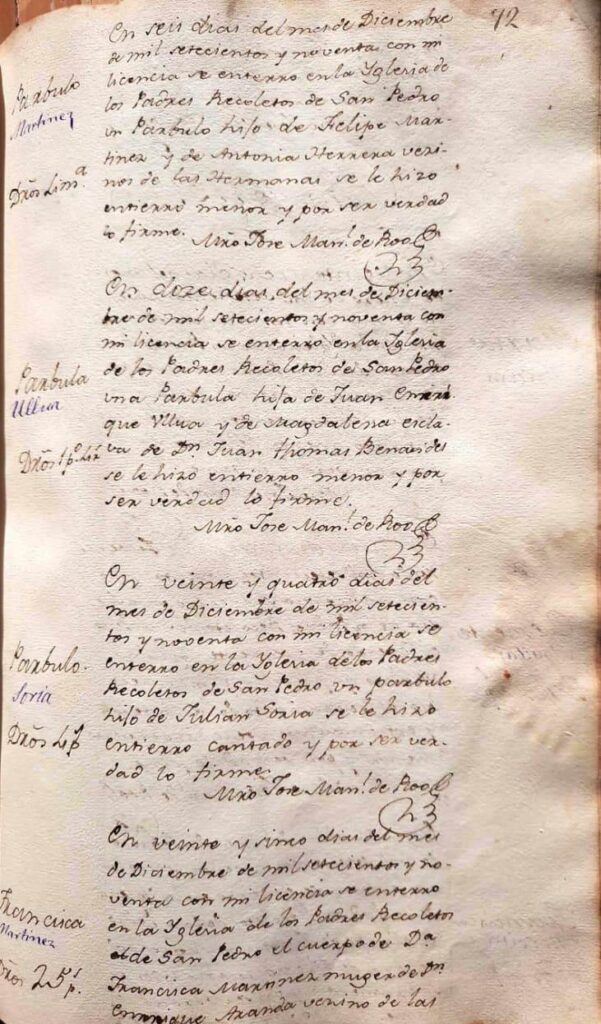 72
En seis dias del mes de Diciembre
de mil setecientos y noventa con mi
licencia se enterro en la Yglesia de
los Padres Recoletos de San Pedro
un Parbulo hijo de Felipe Mar-
tinez y de Antonia Herrera vesi-
nos de las Hermanas se le hizo
entierro menor y por ser verdad
lo firme.
Mro Jose Man.l de Roo
Parbulo
Martinez
Dros Lim.a
En doze dias del mes de Diciem-
bre de mil setecientos y noventa con
mi licencia se enterro en la Yglesia
de los Padres Recoletos de San Pedro
vna Parbula hija de Juan Enrri
que Vllua y de Magdalena escla-
va de Dn Juan Thomas Benavides
se le hizo entierro menor y por
ser verdad lo firme.
Mro Jose Man.l de Roo
Parbula
Ullua
Dros
En veinte y quatro dias del
mes de Diciembre de mil setecien-
tos y noventa con mi licencia se
enterro en la Yglesia de los Padres
Recoletos de San Pedro vn parbulo
hijo de Julian Soria se le hizo
entierro cantado y por ser ver-
dad lo firme.
Mro Jose Man.l de Roo
Parbulo.
Soria
Dros
En veinte y sinco dias del mes
de Diciembre de mil setecientos y no-
venta con mi licencia se enterro
en la Yglesia de los Padres Recoletos
de San Pedro el cuerpo de Da
Francisca Martinez muger de Dn
Enrrique Aranda vesino de las
Francisca
Martinez
Dros 25 p.